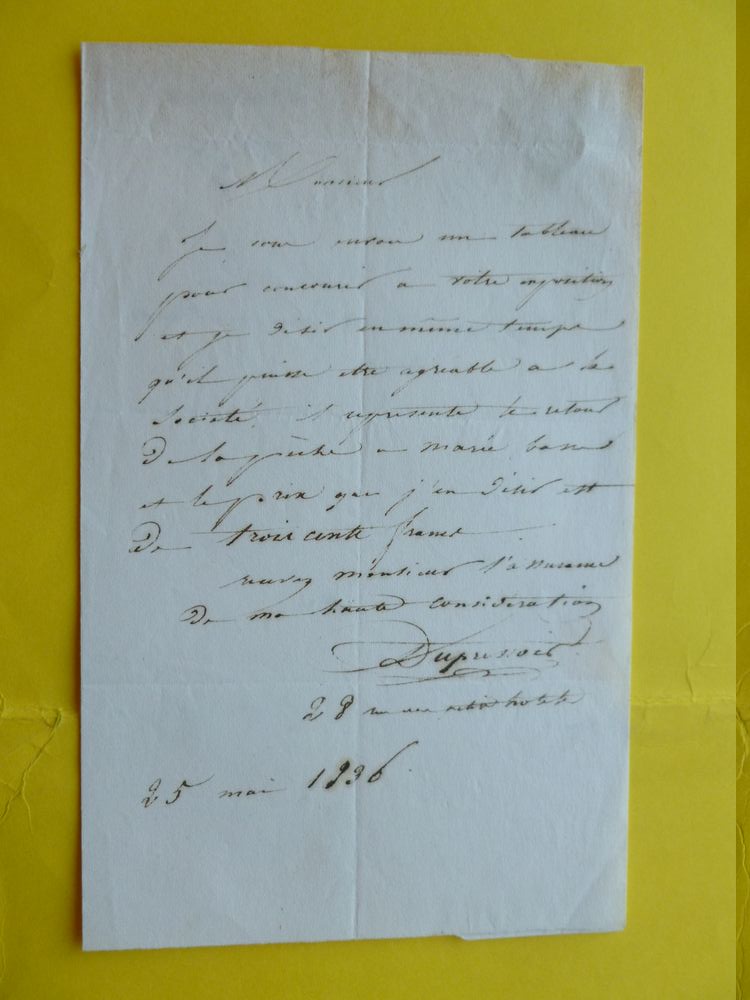 Monsieur
Je vous envoie un tableau
pour concourir a votre exposition
et je désir en même temps
qu'il puisse etre agreable a la
Societé. il represente le retour
De la pèche a marée basse
et le prix que j'en désir est
De trois cents francs
recevez monsieur l'assurance
De ma haute consideration
Dupressoir
28 rue des petits hotels
25 mai 1836